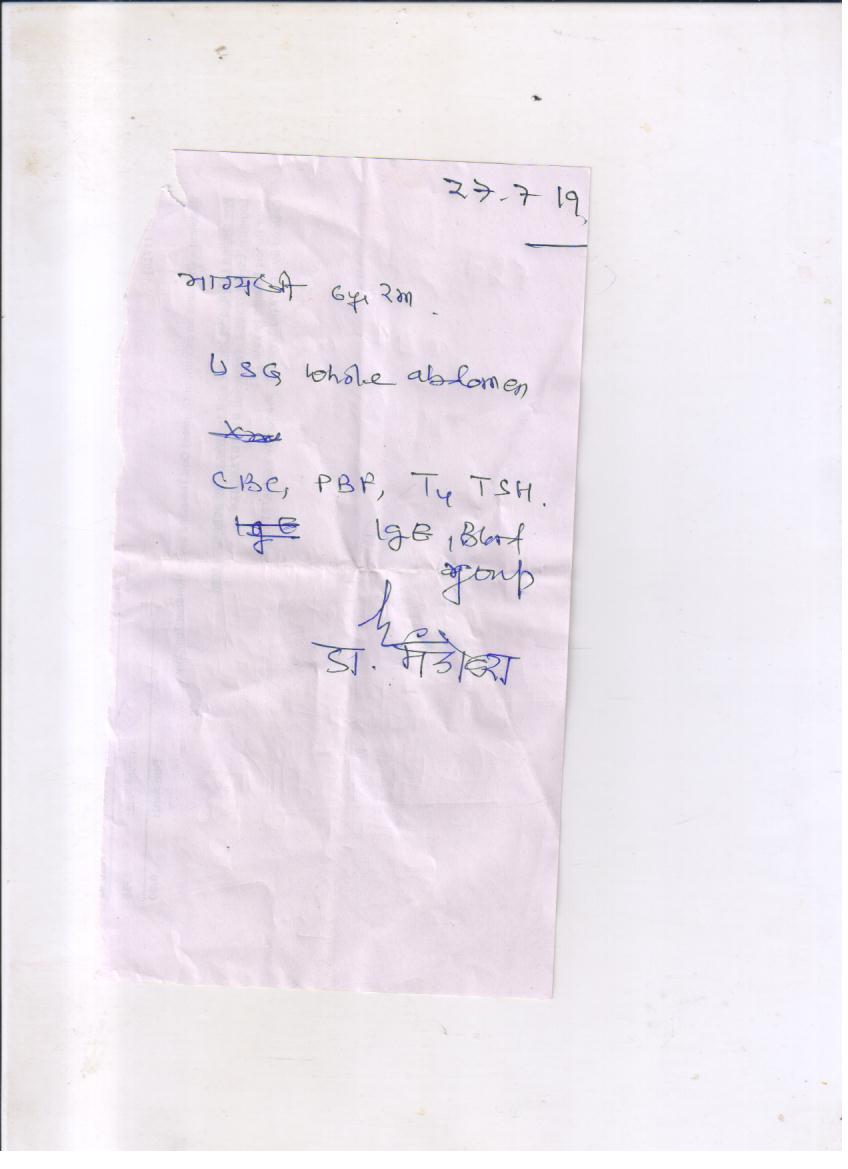 27.7 19
भाग्यश्री 6yr 2m.
USG whole abdomen
CBC, PBF, T4 TSH.
IgE IgE, Blood
group
डा.